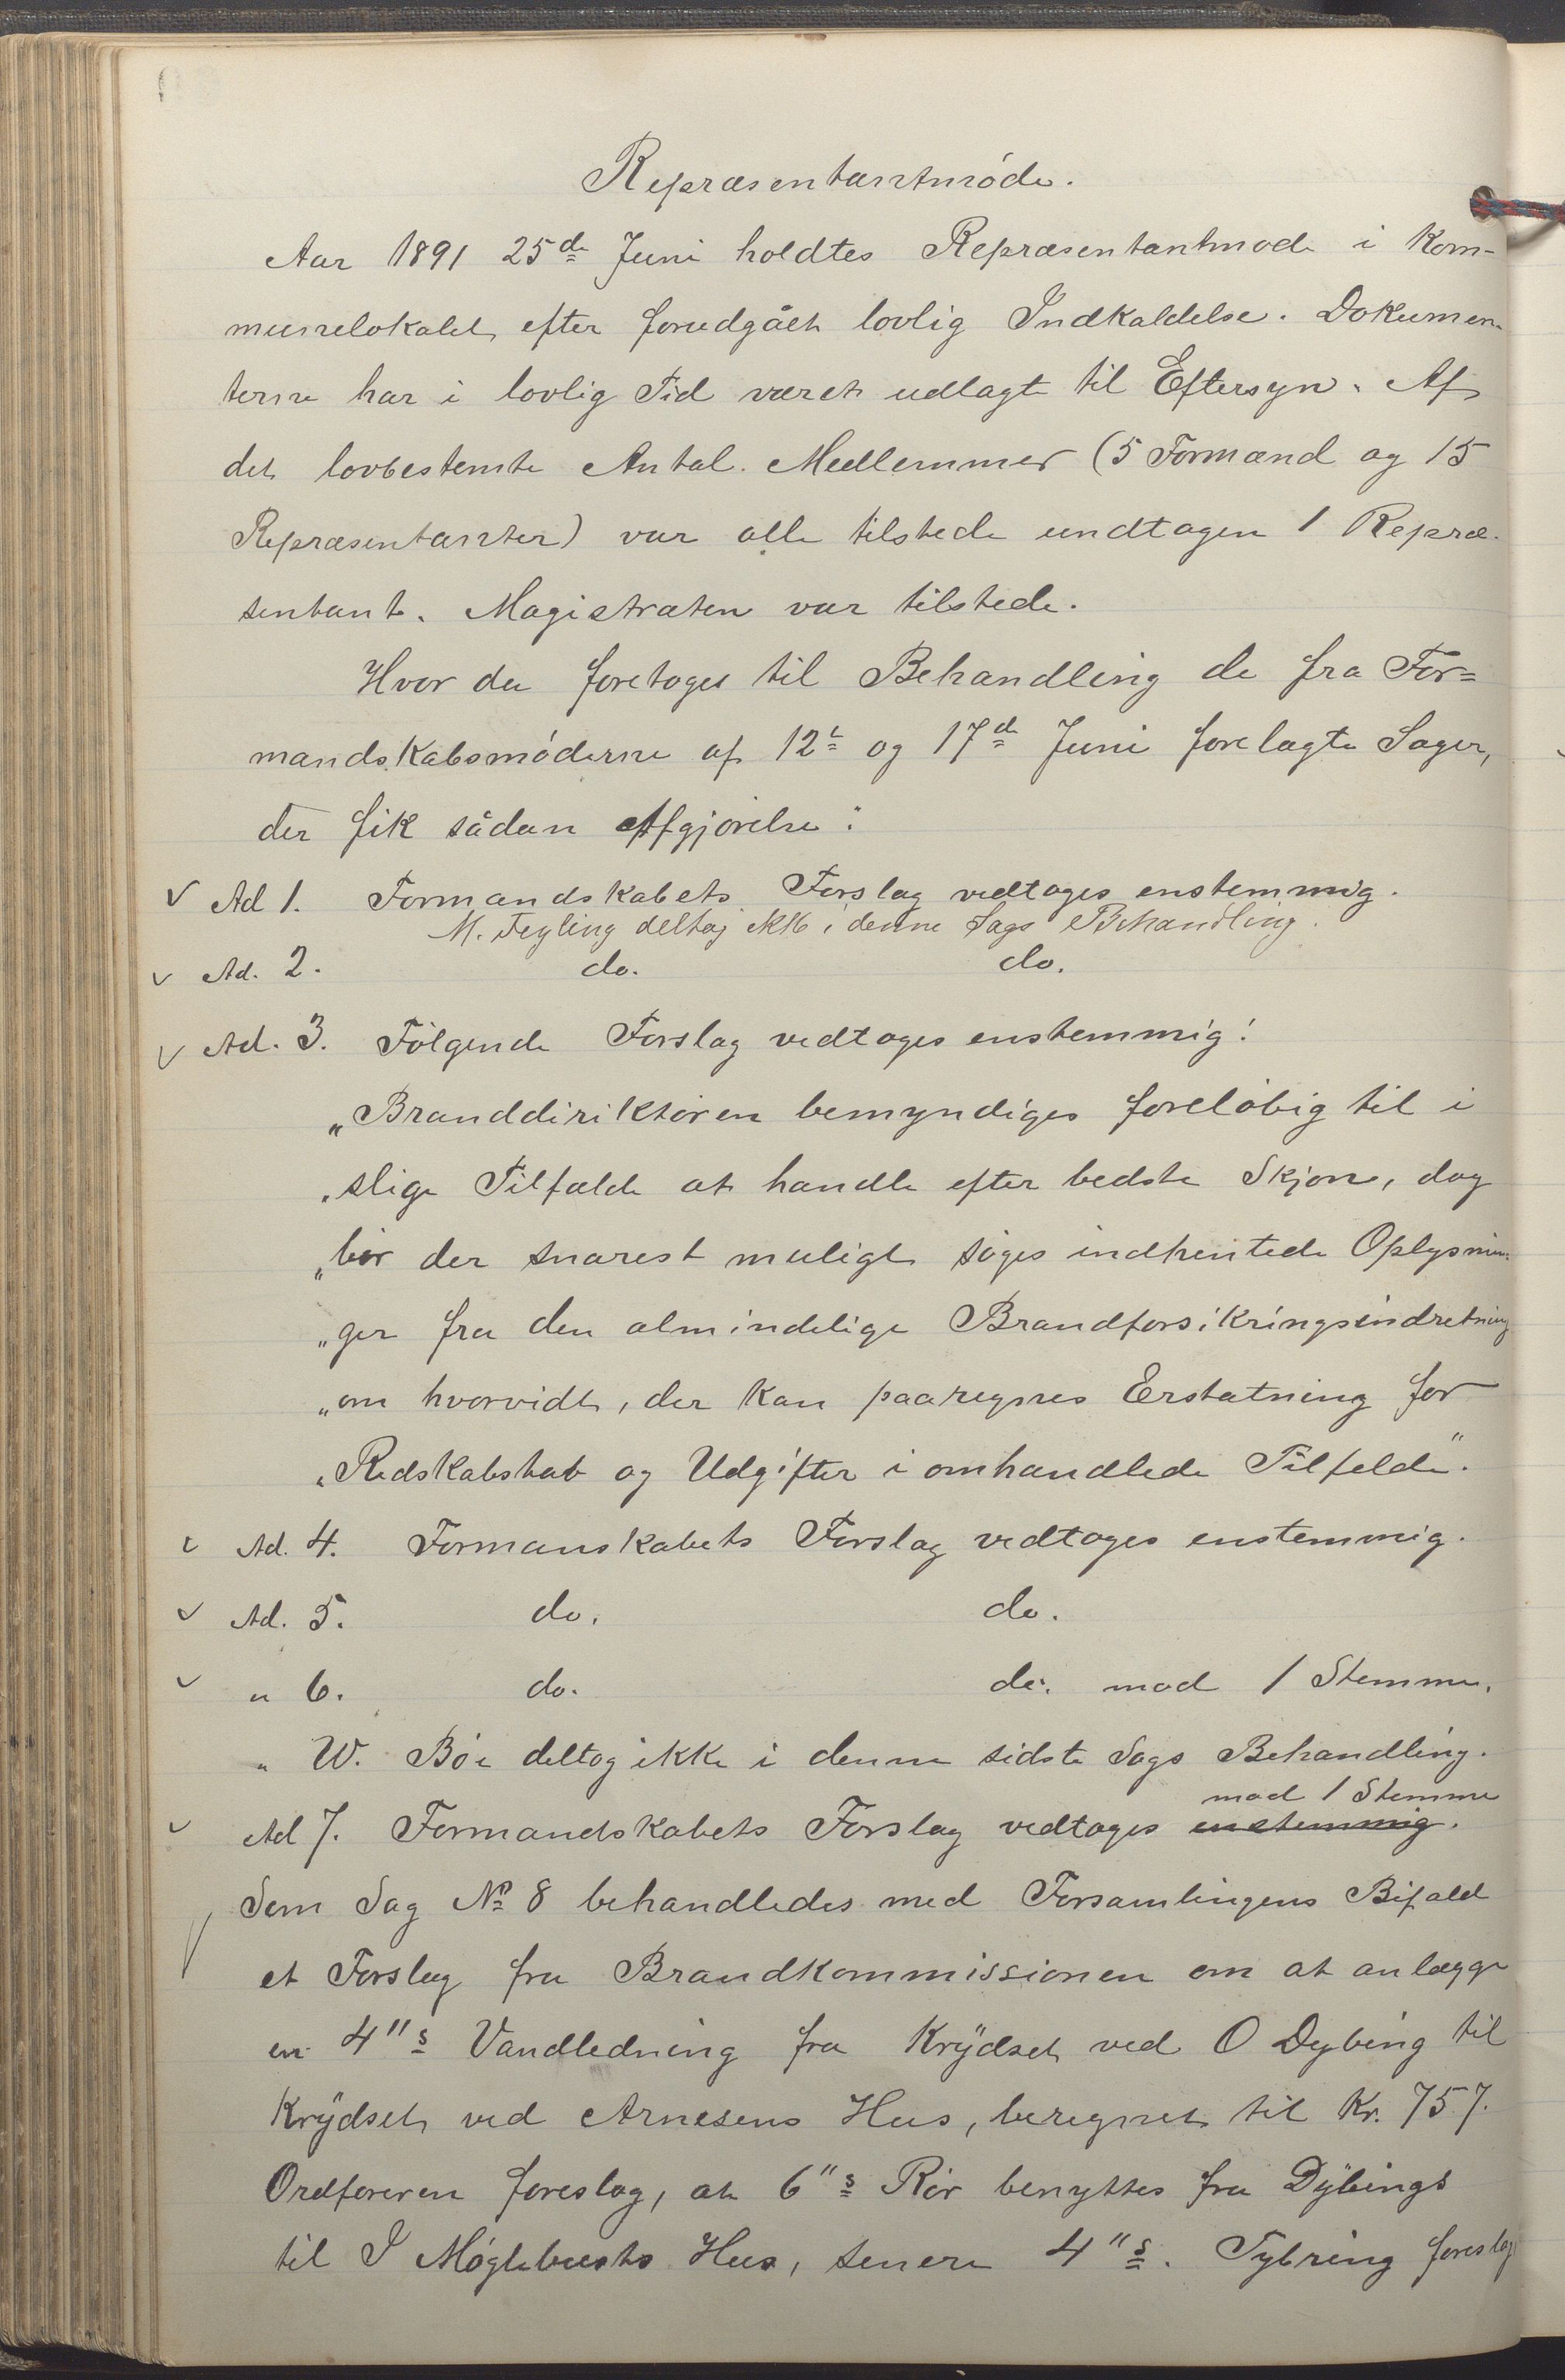 Repræsentantmóde.
Aar 1891 25de Juni holdtes Repræsentantmode i Kom-
munelokalet efter forudgået lovlig Indkaldelse. Dokumen-
terne har i lovlig Tid været udlagte til Eftersyn. Af
det lovbestemte Antal Medlemmer (5 Formænd og 15
Repræsentanter) var alle tilstede undtagen 1 Repræ-
sentant. Magistraten var tilstede.
Hvor da foretoges til Behandling de fra For=
mandskabsmóderne af 12te og 17de Juni forelagte Sager,
der fik sådan Afgjørelse:
✓ Ad 1. Formandskabets Forslag vedtoges enstemmig.
M. Tegling deltog ikke i denne Sags Behandling.
✓ Ad. 2. do. do.
✓ Ad. 3. Fólgende Forslag vedtoges enstemmig:
„Branddirektóren bemyndiges forelóbig til i
„slige Tilfælde at handle efter bedste Skjón, dog
„bór der snarest muligt sóges indhentede Oplysnin-
„ger fra den almindelige Brandforsikringsindretning
„om hvorvidt, der kan paaregnes Erstatning for
„Redskabstab og Udgifter i omhandlede Tilfelde".
✓ Ad. 4. Formanskabets Forslag vedtoges enstemmig.
✓ Ad. 5. do. do.
✓ " 6. do. do. mod 1 Stemme.
" W. Bóe deltog ikke i denne sidste Sags Behandling.
mod 1 Stemme
✓ Ad 7. Formandskabets Forslag vedtoges enstemmig.
Som Sag No 8 behandledes med Forsamlingens Bifald
et Forslag fra Brandkommissionen om at anlægge
en 4"s Vandledning fra Krÿdset ved O Dybing til
Krÿdset ved Arnesens Hus, beregnet til Kr. 757.
Ordfóreren foreslog, at 6"s Rór benyttes fra Dÿbings
til I Móglebusts Hus, senere 4"s. Tybring foreslog